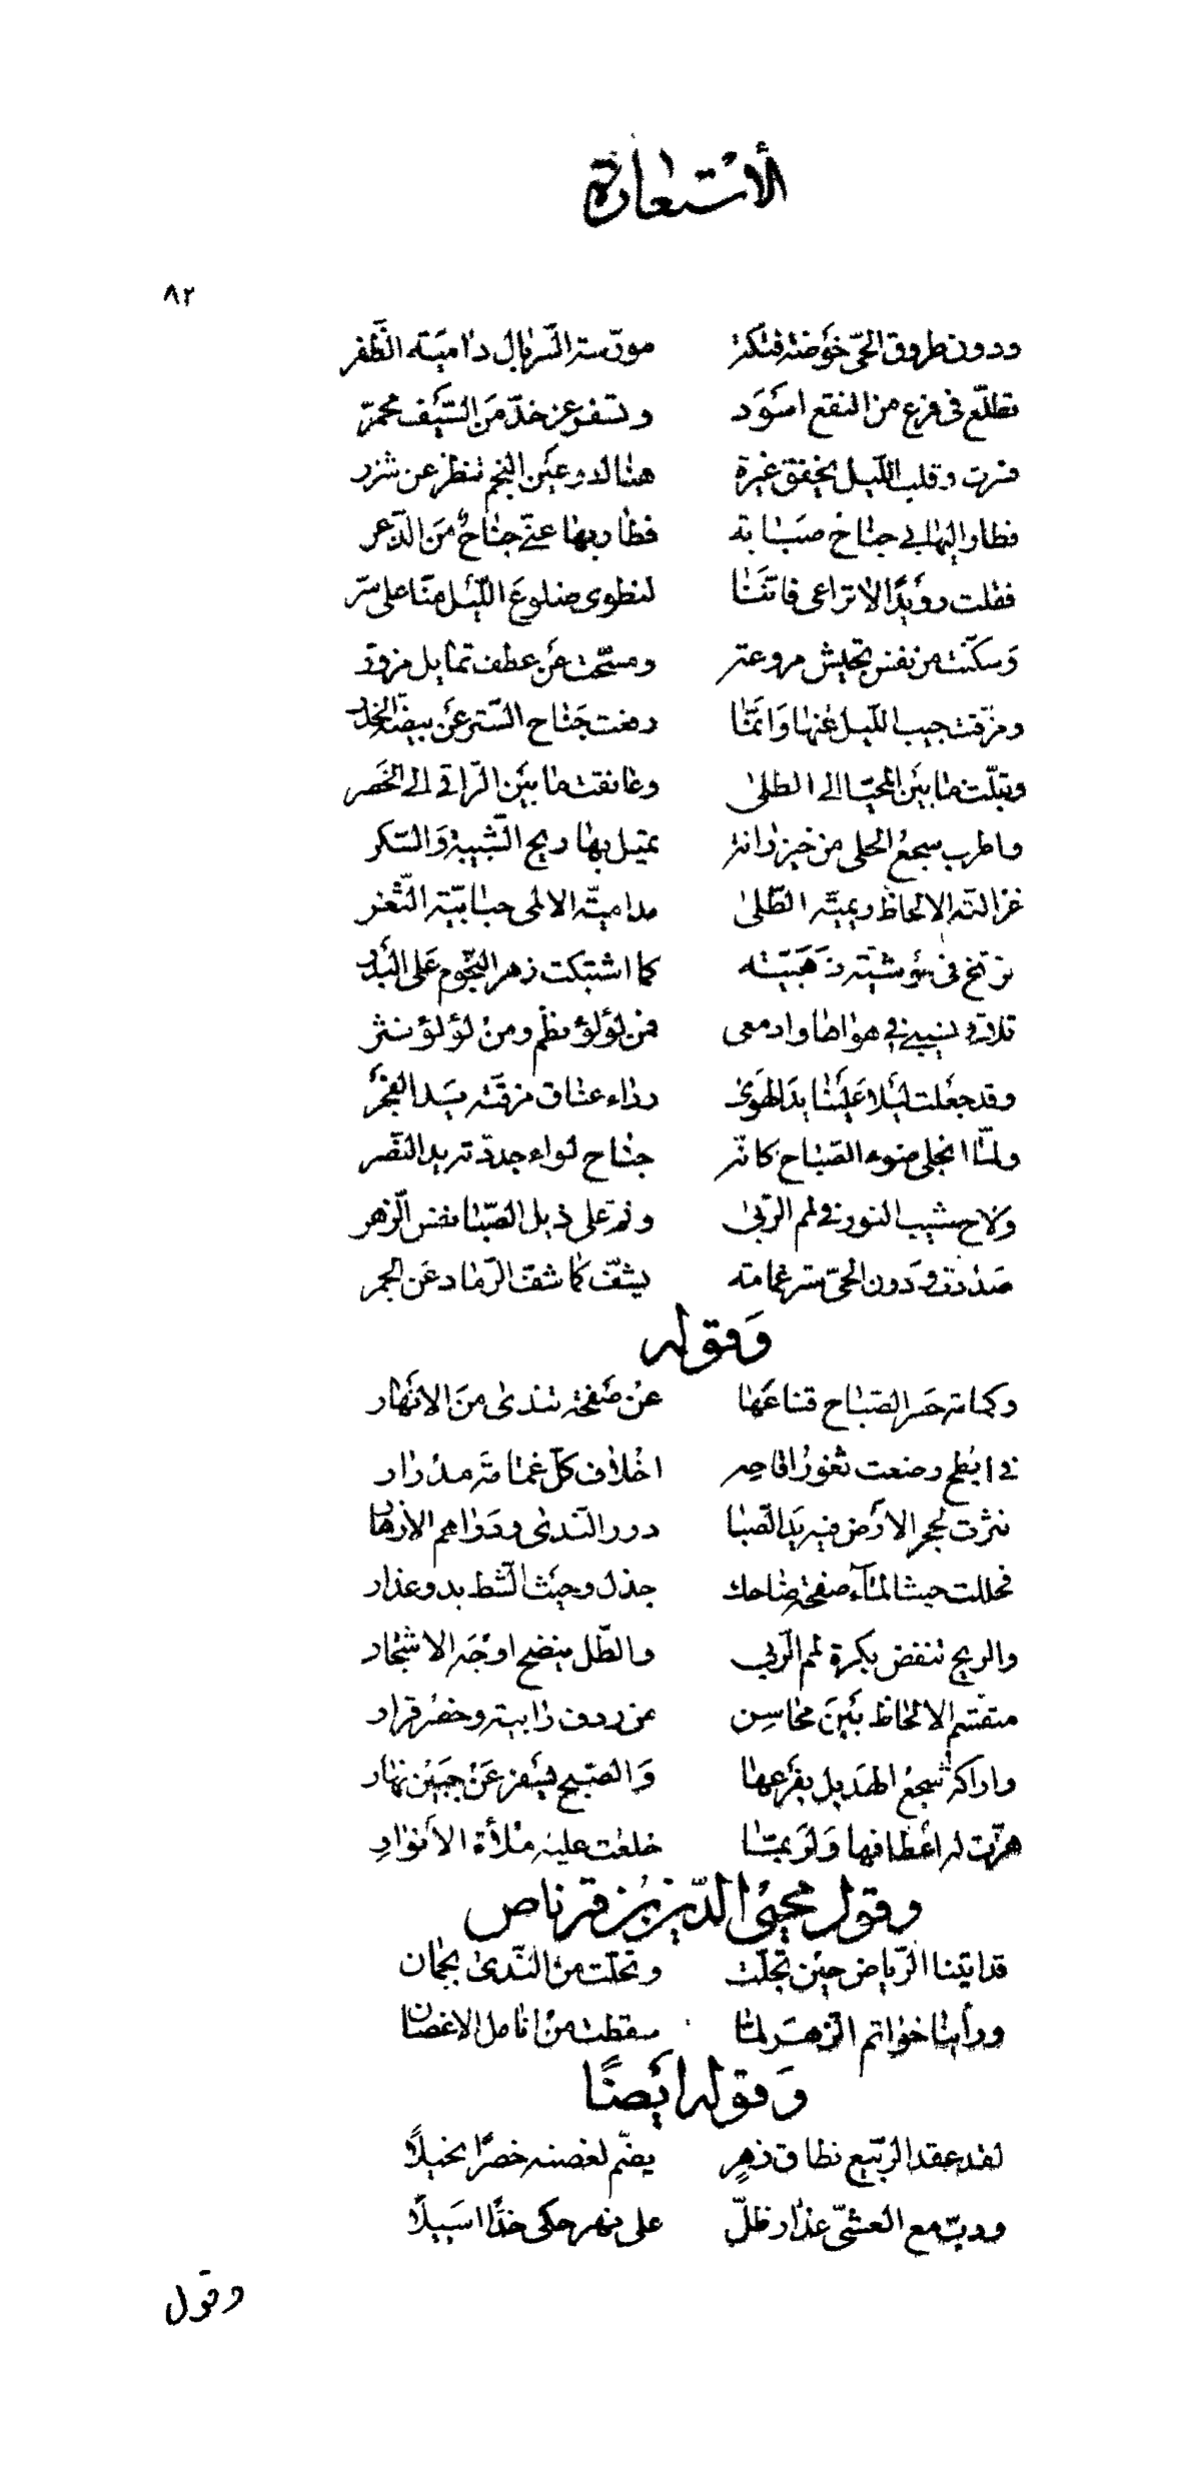 الأستعارة
٨٢
ودون طروق الحيّ خوضة فتكة مورّسة السّربال دامية الظّفر
تطلّع في فرع من النقع اسود وتسفر عن خدّ من السّيف محمرّ
فسرت وقلب اللّيل يخفق غيرة هنالك وعين النجم تنظر عن شزر
فطار اليها بي جناح صبابة فطار بها عنّي جناح من الذّعر
فقلت رويدًا لا تراعي فاننا لنطوي ضلوع اللّيل منّا على سّر
وسكّنت من نفس تجيش مروعة ومسّحت عن عطف تمايل مزورّ
ومزّقت جيب اللّيل عنها وانّما رفعت جناح السّتر عن بيضة الخدر
وقبّلت ما بين المحيّا الى الطلى وعانقت ما بين التّراقي الى الخصر
واطرب سجع الحلى من خيزرانة تميل بها ريح الشّبيبة والسّكر
غزاليّة الالحاظ ريميّة الطّلى مداميّة الالمى حبابيّة الثّغر
ترنّح في موشيّة ذهبيّة كما اشتبكت زهر النّجوم على البدر
تلاقى نسيبي في هواها وادمعي فمن لؤلؤ نظم ومن لؤلؤ نثر
وقد جعلت ليلا علينا يد الهوى رداء عناق مزقته يد الفجر
ولمّا انجلى ضوء الصّباح كانّه جناح لواء جدة تربد النّصر
ولاح مشيب النور في لمم الرّبى ونمّ على ذيل الصّبا نفس الّزهر
صدرت ودون الحيّ ستر غمامة يشفّ كما شفّ الرّماد عن الجمر
وقوله
وكمامة حدر الصّباح قناعها عن صفحة تندى من الازهار
في ابطح رضعت ثغور اقاحه اخلاف كلّ غمامة مدرار
نثرت بحجر الأرض فيه يد الصّبا درر النّدى ودراهم الازهار
فحللت حيث الماء صفحة ضاحك جذل وحيث الشّط بدو عذار
والريح تنفض بكرة لمم الّربى والطّل ينضح اوجه الاشجار
متقسّم الالحاظ بين محاسن من ردف رابية وخصر قرار
واراكة سجع الهديل بفرعها والصّبح يسفر عن جبين نهار
هزّت له اعطافها ولربّما خلعت عليه ملأة الأنوارِ
وقول محيي الدّين بن قرناص
قد اتينا الرّياض حين تجلّت وتحلّت من النّدى بجمان
ورأينا خواتم الزّهر لمّا سقطت من انامل الاغصان
وقوله ايضًا
لقد عقد الرّبيع نطاق زهرٍ يضّم لغصنه خصرًا نحيلًا
ودبّ مع العشيّ عذار ظلّ على نهر حكى خدًا اسيلًا
وقول